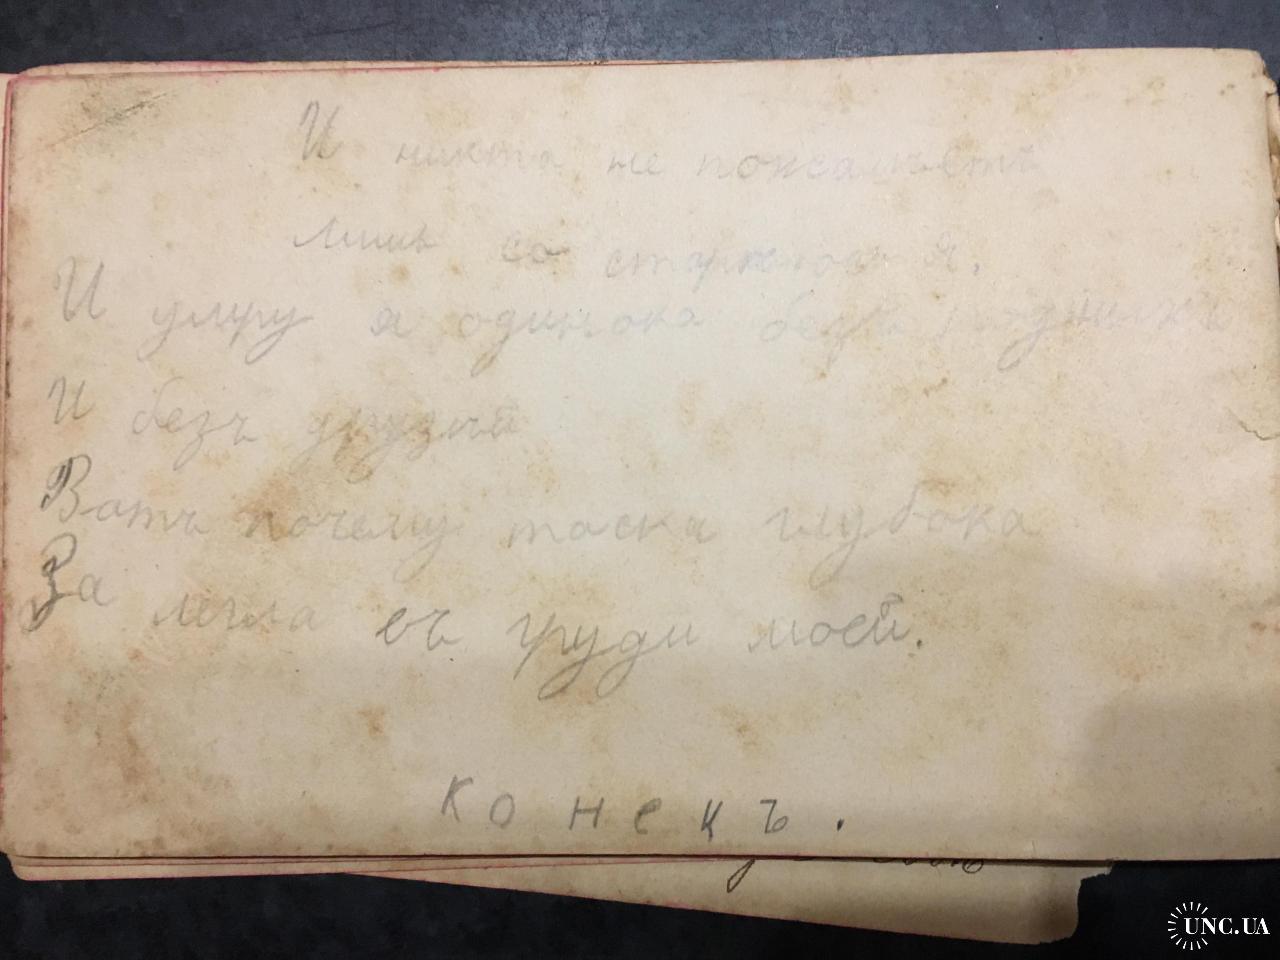 И никто не пожалѣетъ
лишь со
И умру я одинока безъ
И безъ друзей
Вотъ почему тоска глубока
За легла въ груди моей.
Конецъ.
UNC.UA